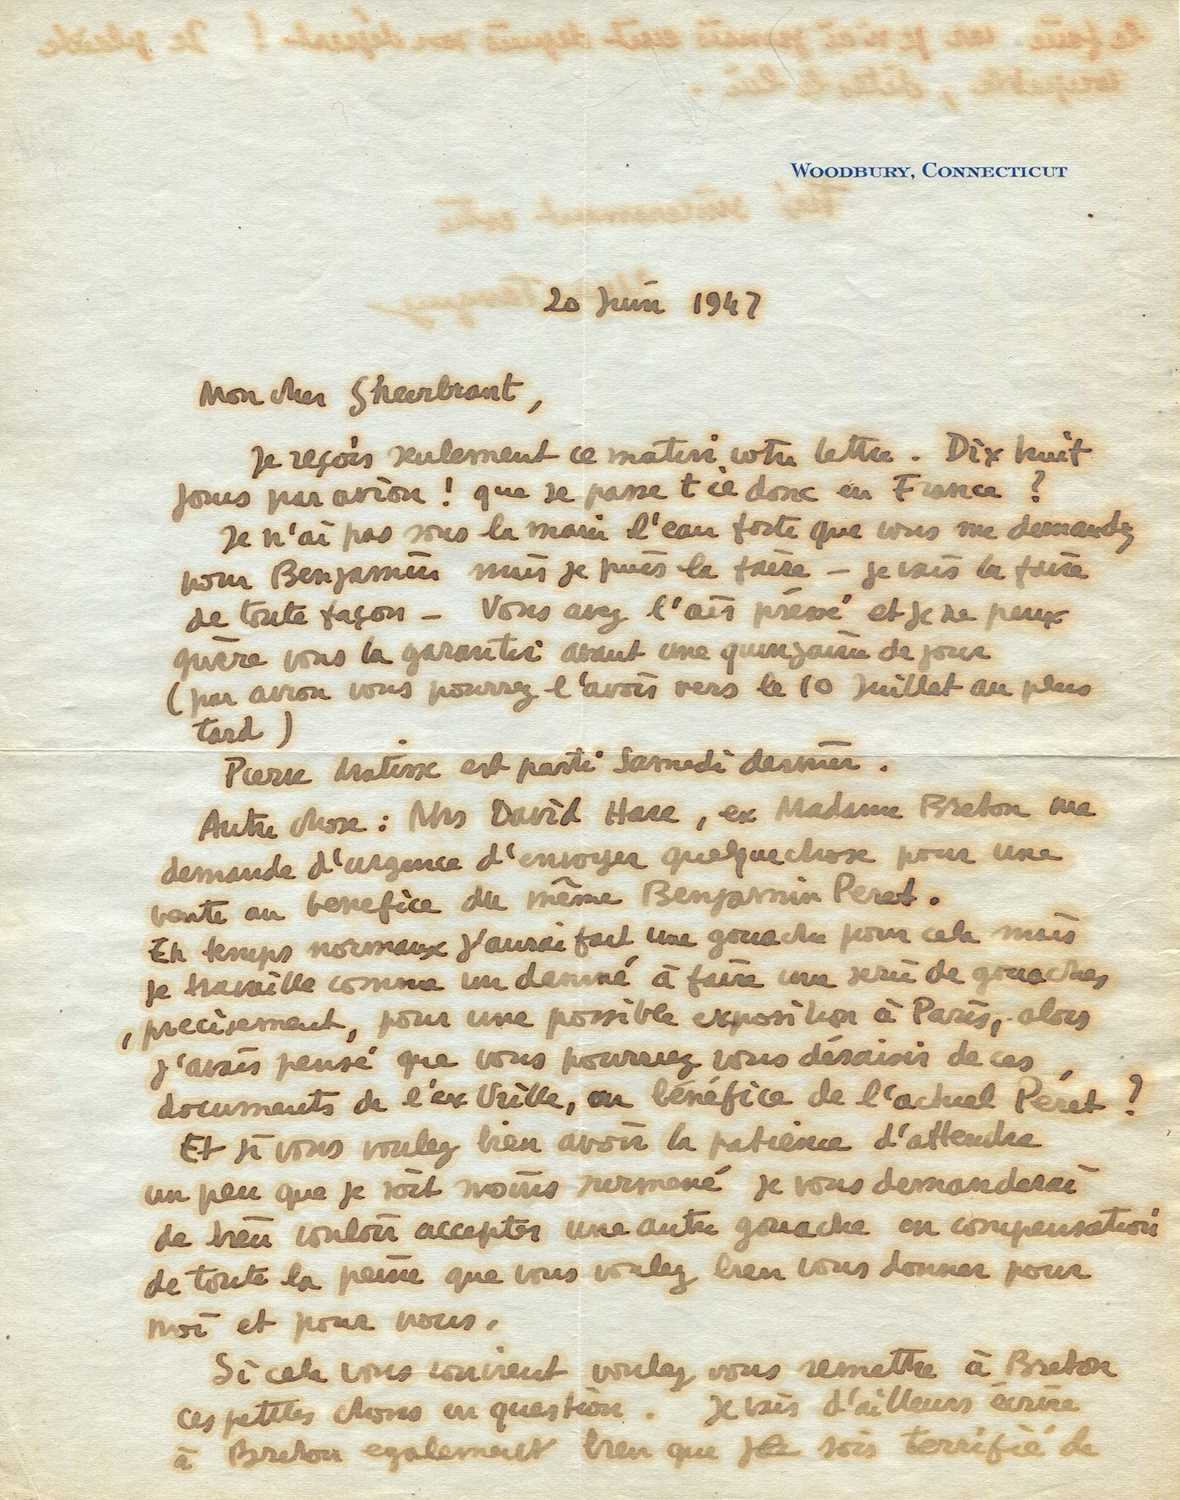 WOODBURY, CONNECTICUT
20 Juin 1947
Mon cher Gheerbrant,
Je reçois seulement ce matin votre lettre. Dix huit
jours par avion ! que se passe t il donc en France ?
Je n'ai pas sous la main l'eau forte que vous me demandez
pour Benjamin mais je puis la faire – je vais la faire
de toute façon – Vous avez l'air préssé et je ne peux
guère vous la garantir avant une quinzaine de jour
(par avion vous pourrez l'avoir vers le 10 Juillet au plus
tard)
Pierre Matisse est parti Samedi dernier.
Autre chose : Mrs David Hare, ex Madame Breton me
demande d'urgence d'envoyer quelquechose pour une
vente au benefice du même Benjamin Peret.
En temps normaux j'aurai fait une gouache pour cela mais
je travaille comme un damné à faire une serie de gouaches
, precisement, pour une possible exposition à Paris, alors
j'avais pensé que vous pourriez vous désaisir de ces
documents de l'ex Vrille, au bénéfice de l'actuel Péret ?
Et si vous voulez bien avoir la patience d'attendre
un peu que je soit moins surmené je vous demanderai
de bien vouloir accepter une autre gouache en compensation
de toute la peine que vous voulez bien vous donner pour
moi et pour nous.
Si cela vous convient voulez vous remettre à Breton
ces petites choses en question. Je vais d'ailleurs écrire
à Breton egalement bien que je sois terrifié de
le faire car je n'ai jamais écrit depuis son départ ! Je plaide
coupable, dites le lui.
Très sincerement votre
Tanguy